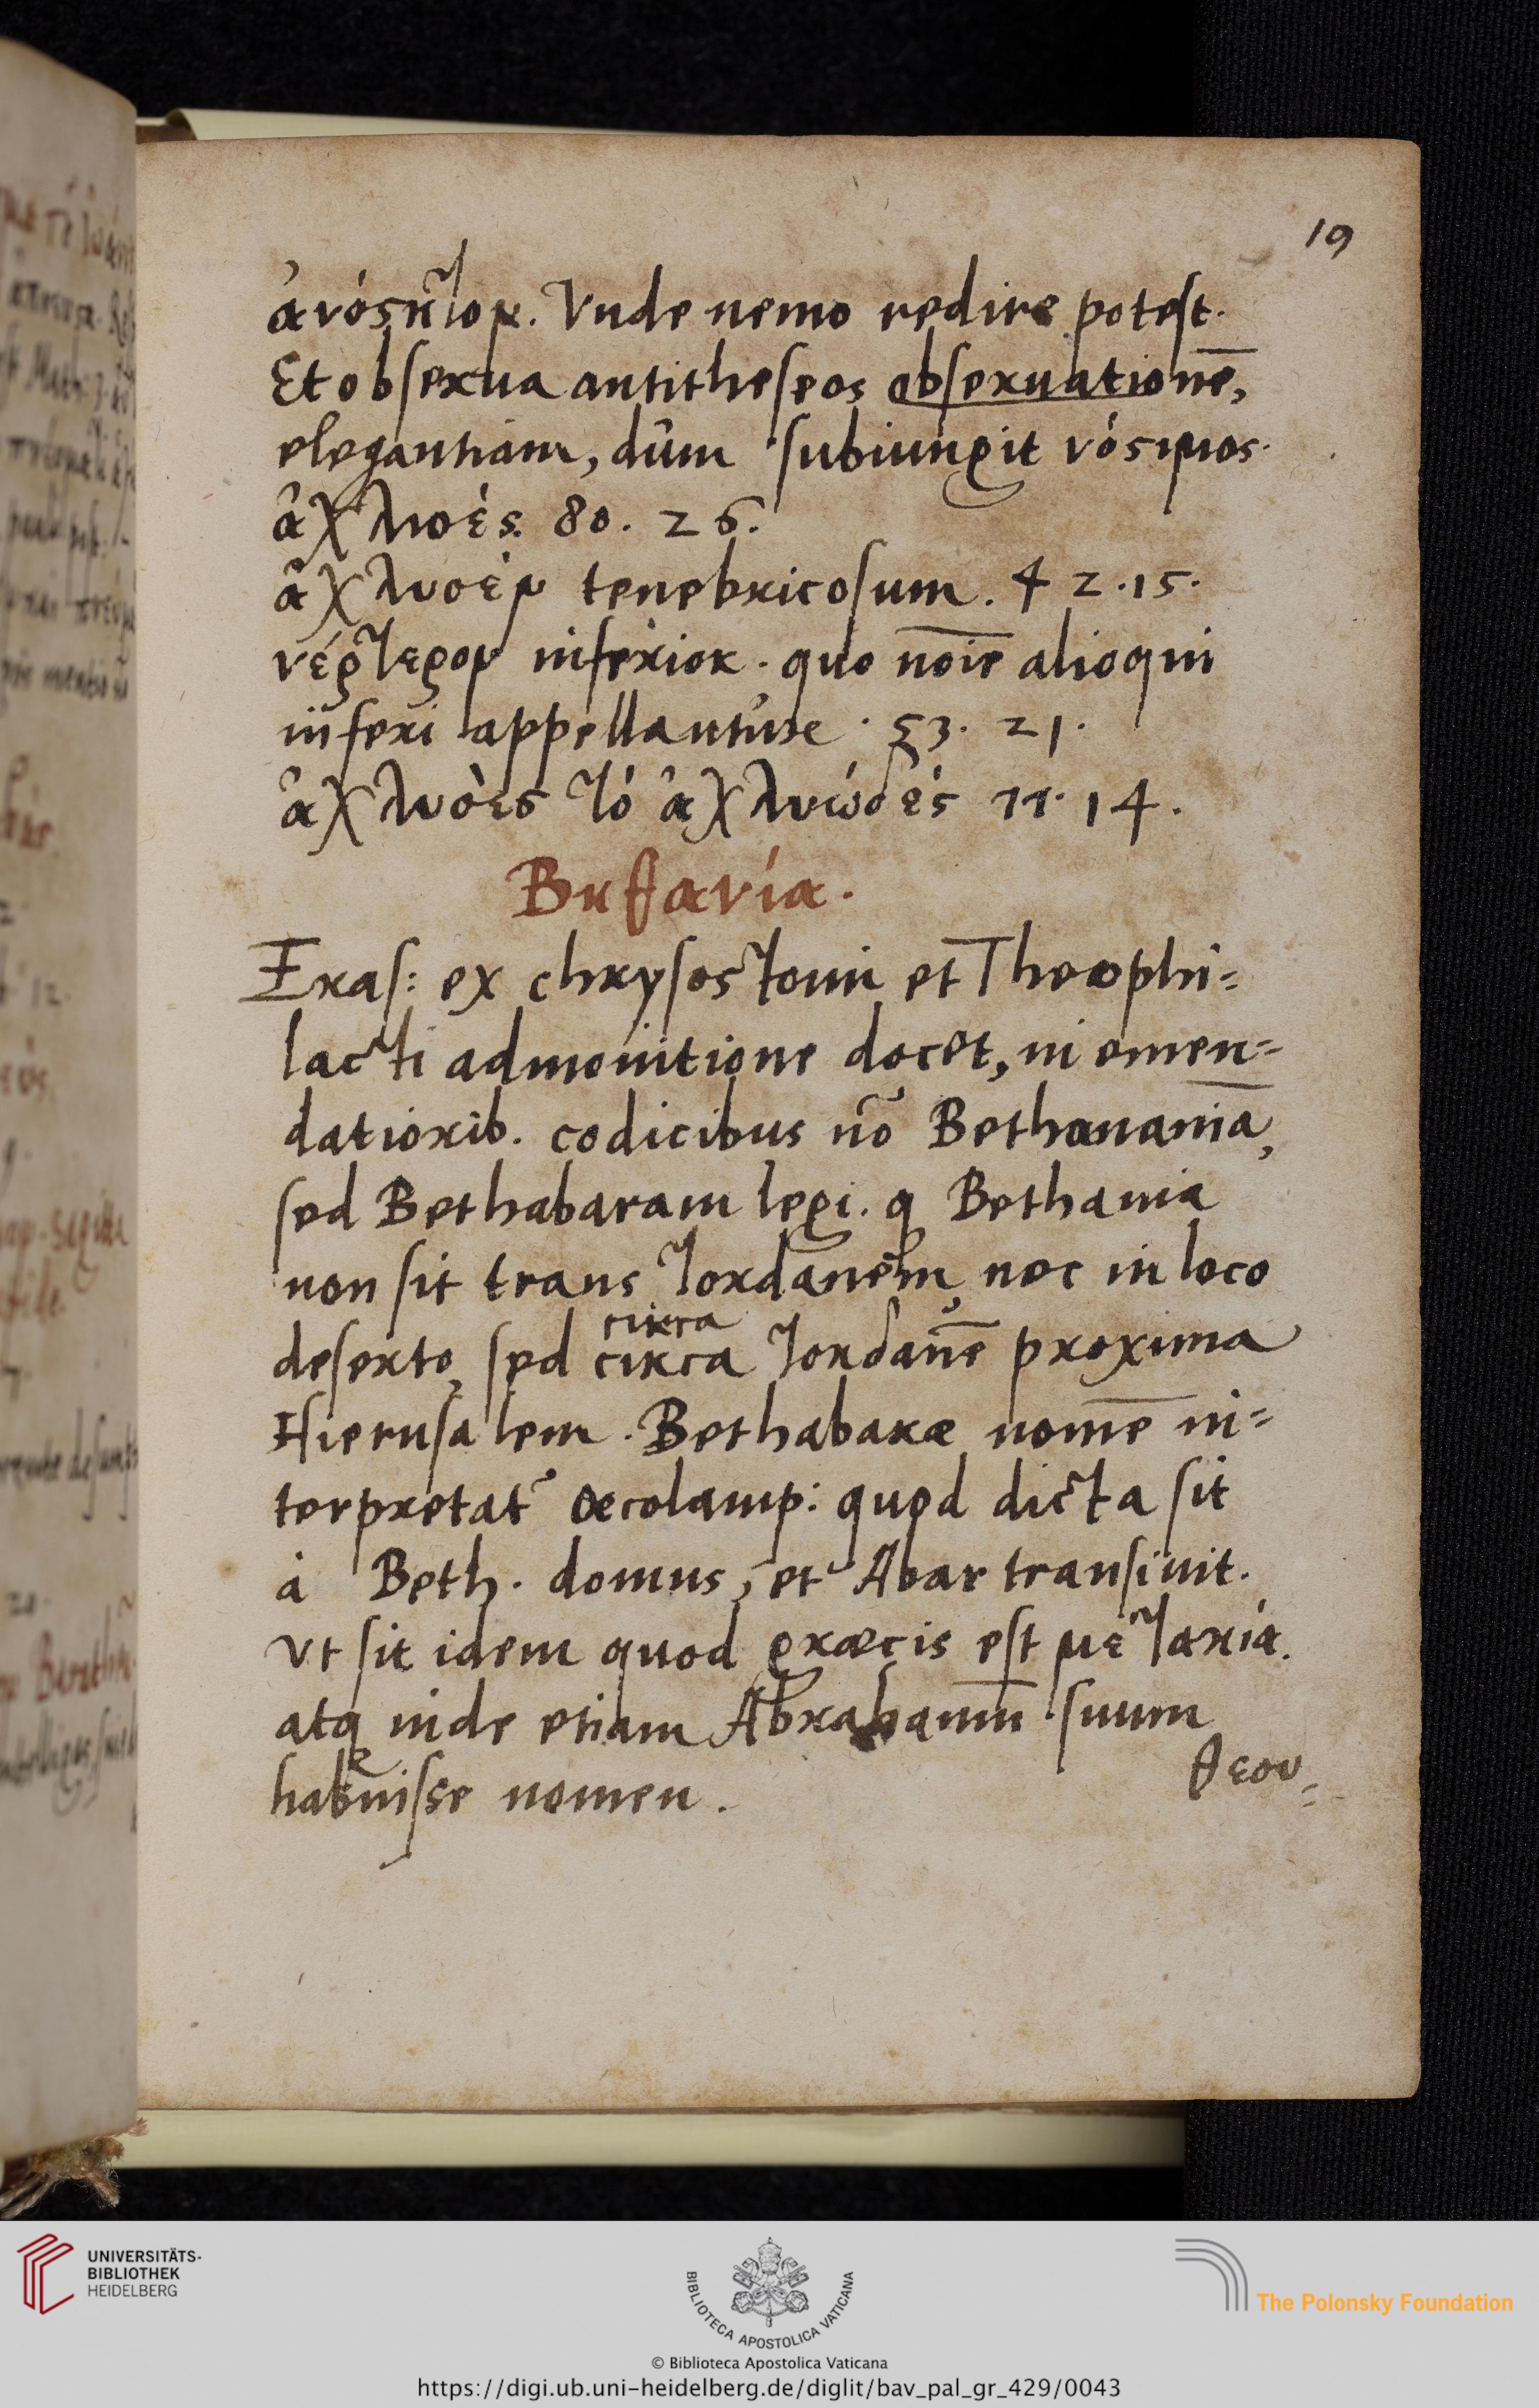 19
ἀνόςητον. Vnde nemo redire potest.
Et obserua antitheseos obseruationē,
elegantiam, dùm subiungit νόςιμος.
ἀχλυοές. 80. 26.
ἀχλυοέν tenebricosum. 42.15.
νέρτερον inferior. quo noīe alioqui
inferi appellantur. 53. 21.
ἀχλυόεις τό ἀχλυώδες 77. 14.
Βηθανία.
Eras: ex chrysostomi et Theophi=
lacti admonitione docet, in emen=
datiorib. codicibus nō Bethananiā,
sed Bethabaram legi. q Bethania
non sit trans Iordanem, nec in loco
circa
deserto, sed circa Iordanē proxima
Hierusalem. Bethabaræ nomē in=
terpretat Oecolamp: quod dicta sit
à Beth. domus, et Abar transiuit.
Vt sit idem quod græcis est μεταχία.
atq inde etiam Abrahamum suum
habuisse nomen.
θεου=
UNIVERSITÄTS-
BIBLIOTHEK
HEIDELBERG
BIBLIOTECA APOSTOLICA VATICANA
The Polonsky Foundation
© Biblioteca Apostolica Vaticana
https://digi.ub.uni-heidelberg.de/diglit/bav_pal_gr_429/0043